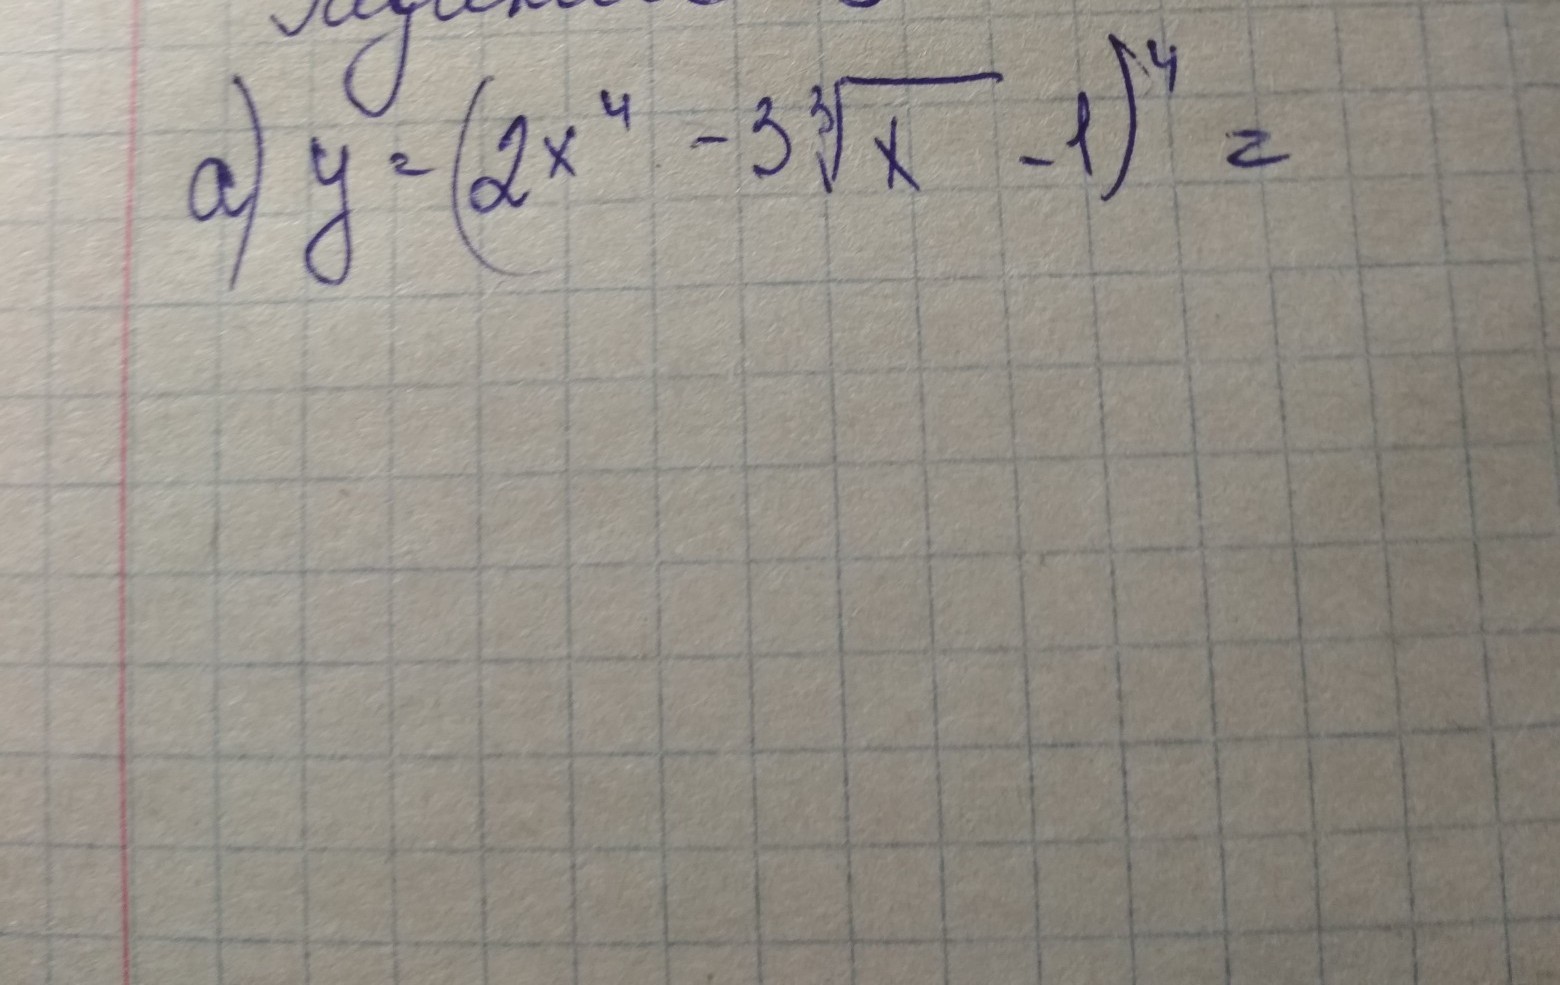 а) y = (2x⁴ - 3∛x - 1)⁴ =